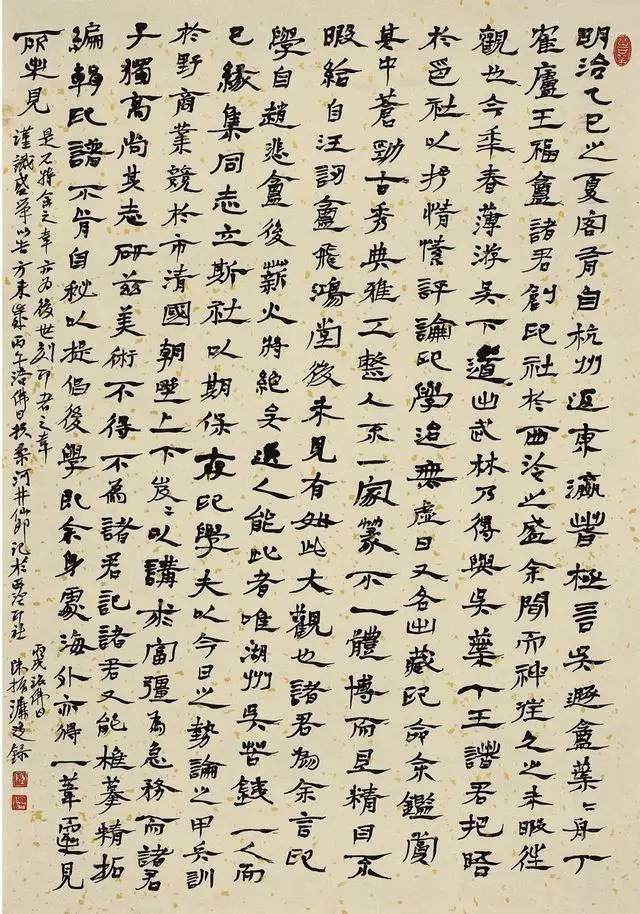 明治乙巳之夏客有自杭州返東瀛者極言吳遯盦葉〻舟丁
隺廬王福盦諸君創印社於西泠之盛余聞而神往久之未暇往
觀也今年春薄游吳下道出武林乃得與吳葉丁王諸君把晤
於邑社以抒情愫評論印學殆無虛日又各出藏印命余鑑賞
其中蒼勁古秀典雅工整人不一家篆不一體博而且精目不
暇給自汪訒盦飛鴻堂後未見有如此大觀也諸君為余言印
學自趙悲盦後薪火將絕矣近人能此者唯湖州吳苦鐵一人而
已緣集同志立斯社以期保存印學夫以今日之勢論之甲兵訓
於野商業競於市清國朝野上下岌〻以講求富彊為急務而諸君
子獨高尚其志研茲美術不得不為諸君記諸君又能椎摹精拓
編輯印譜不肯自秘以提倡後學即余身處海外亦得一葦見
所未見
是不特余之幸亦為後世刻印者之幸
謹識盛舉以告方來歲丙午浴佛日扶桑河井仙郎記於西泠印社
丙戌浴佛日
陳振濂迻錄